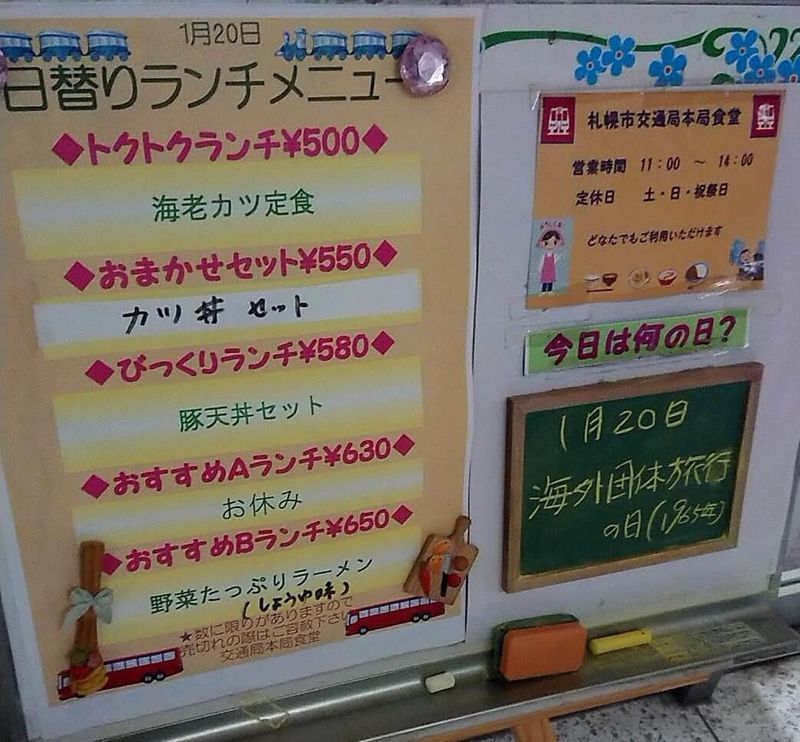 1月20日
日替りランチメニュー
◆トクトクランチ¥500◆
海老カツ定食
◆おまかせセット¥550◆
カツ丼 セット
◆びっくりランチ¥580◆
豚天丼セット
◆おすすめAランチ¥630◆
お休み
◆おすすめBランチ¥650◆
野菜たっぷりラーメン
(しょうゆ味)
★数に限りがありますので
売切れの際はご容赦下さい
交通局本局食堂
札幌市交通局本局食堂
営業時間 11:00 ～ 14:00
定休日 土・日・祝祭日
どなたでもご利用いただけます
今日は何の日?
1月20日
海外団体旅行
の日(1965年)